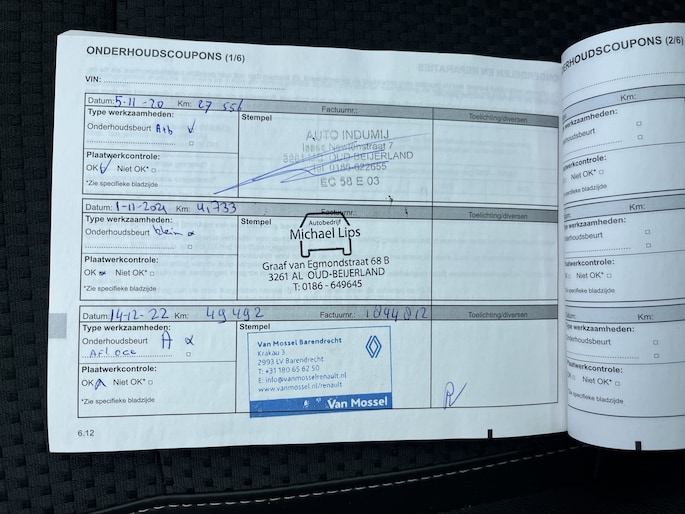 ONDERHOUDSCOUPONS (1/6)
VIN:
Datum: 5-11-20 Km: 27 556 Factuurnr.: Toelichting/diversen
Type werkzaamheden:
Onderhoudsbeurt A+b √
Stempel
AUTO INDUMIJ
OUD-BEIJERLAND
Tel. 0186-622655
EC 58 E 03
Plaatwerkcontrole:
OK √ Niet OK* □
*Zie specifieke bladzijde
Datum: 1-11-2021 Km: 41,733
Type werkzaamheden:
Onderhoudsbeurt klein
Stempel
Autobedrijf
Michael Lips
Graaf van Egmondstraat 68 B
3261 AL OUD-BEIJERLAND
T: 0186 - 649645
Plaatwerkcontrole:
OK Niet OK* □
*Zie specifieke bladzijde
Datum: 14-12-22 Km: 49492 Factuurnr.: 1844812 Toelichting/diversen
Type werkzaamheden:
Onderhoudsbeurt A
Stempel
Van Mossel Barendrecht
Krakau 3
2993 LV Barendrecht
T: +31 180 65 62 50
E: info@vanmosselrenault.nl
www.vanmossel.nl/renault
Van Mossel
Plaatwerkcontrole:
OK Niet OK* □
*Zie specifieke bladzijde
6.12
ERHOUDSCOUPONS (2/6)
Km:
werkzaamheden:
derhoudsbeurt □
atwerkcontrole:
Niet OK* □
specifieke bladzijde
Km:
werkzaamheden:
derhoudsbeurt □
aatwerkcontrole:
Niet OK* □
specifieke bladzijde
Km:
werkzaamheden:
derhoudsbeurt □
aatwerkcontrole:
Niet OK* □
specifieke bladzijde